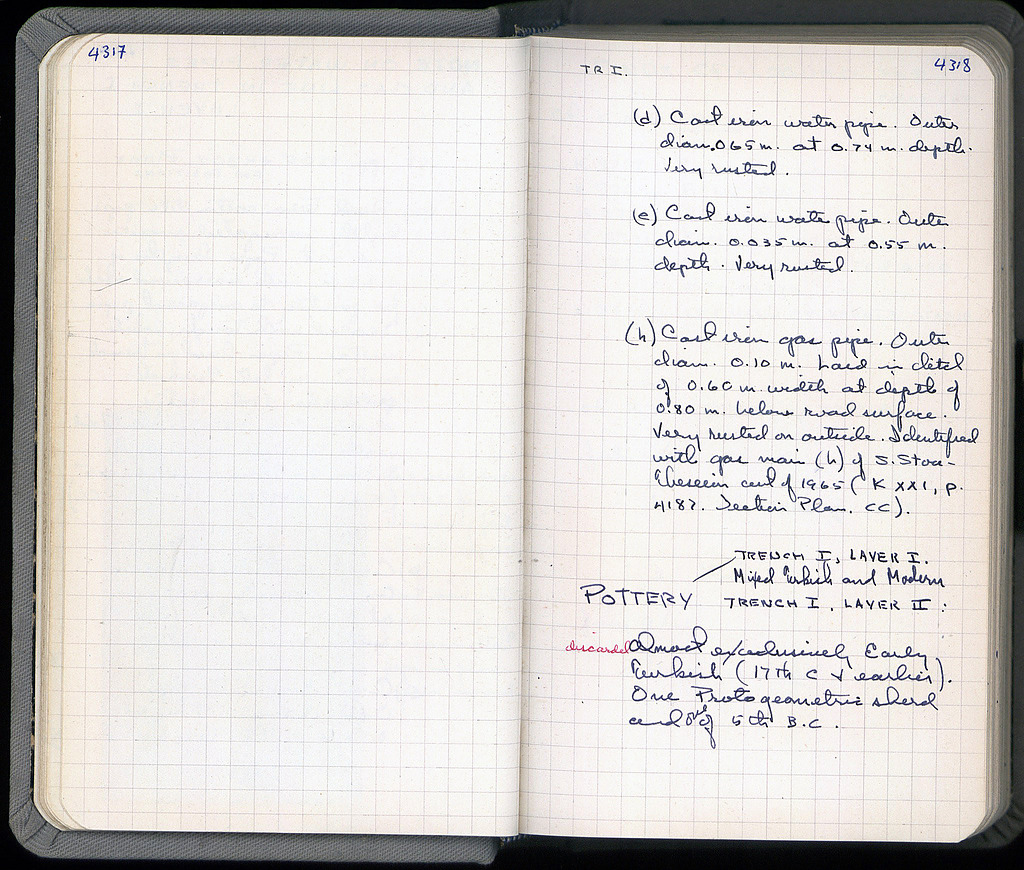 4317
4318
TR I.
(d) Cast iron water pipe. Outer
diam. 065 m. at 0.74 m. depth.
Very rusted.
(e) Cast iron water pipe. Outer
diam. 0.035 m. at 0.55 m.
depth. Very rusted.
(h) Cast iron gas pipe. Outer
diam. 0.10 m. Laid in ditch
of 0.60 m. width at depth of
0.80 m. below road surface.
Very rusted on outside. Identified
with gas main (h) of S. Stoa-
of 1965 (K XXI, p.
4187. Section Plan. CC).
TRENCH I, LAYER I.
Mixed Turkish and Modern
POTTERY TRENCH I, LAYER II:
discarded Almost exclusively Early
Turkish (17th c & earlier).
One Protogeometric sherd
and one of 5th B.C.